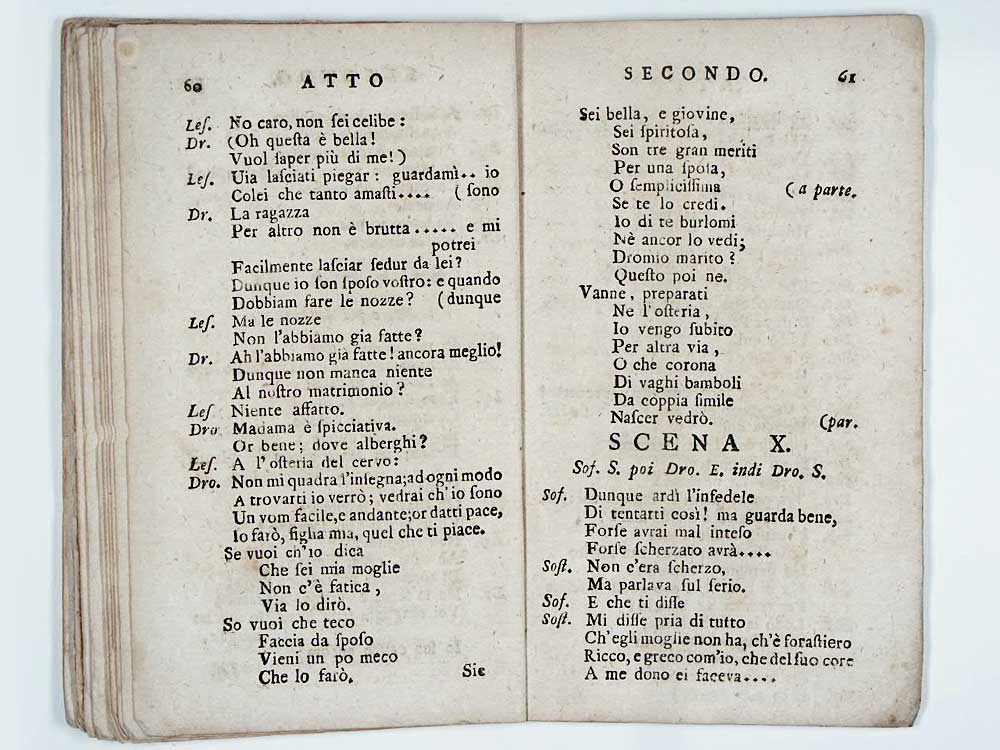 60 ATTO
Leſ. No caro, non ſei celibe :
Dr. (Oh queſta è bella !
Vuol ſaper più di me ! )
Leſ. Uia laſciati piegar : guardamì.. io
Colei che tanto amaſti.... ( ſono
Dr. La ragazza
Per altro non è brutta ..... e mi
potrei
Facilmente laſciar ſedur da lei ?
Dunque io ſon ſpoſo voſtro : e quando
Dobbiam fare le nozze ? ( dunque
Leſ. Ma le nozze
Non l'abbiamo gia fatte ?
Dr. Ah l'abbiamo già fatte ! ancora meglio!
Dunque non manca niente
Al noſtro matrimonio ?
Leſ Niente affatto.
Dro Madama è ſpicciativa.
Or bene ; dove alberghi ?
Leſ. A l'oſteria del cervo :
Dro. Non mi quadra l'inſegna ; ad ogni modo
A trovarti io verrò ; vedrai ch'io ſono
Un vom facile, e andante ; or datti pace,
Io farò, figlia mia, quel che ti piace.
Se vuoi ch'io dica
Che ſei mia moglie
Non c'è fatica ,
Via lo dirò.
So vuoi che teco
Faccia da ſpoſo
Vieni un po meco
Che lo farò.
Sie
SECONDO. 61
Sei bella, e giovine,
Sei ſpiritoſa,
Son tre gran meriti
Per una ſpoſa,
O ſempliciſſima (a parte.
Se te lo credi.
Io di te burlomi
Nè ancor lo vedi;
Dromio marito ?
Queſto poi ne.
Vanne , preparati
Ne l'oſteria ,
Io vengo ſubito
Per altra via ,
O che corona
Di vaghi bamboli
Da coppia ſimile
Naſcer vedrò. (par.
SCENA X.
Sof. S. poi Dro. E. indi Dro. S.
Sof. Dunque ardì l'infedele
Di tentarti così ! ma guarda bene,
Forſe avrai mal inteſo
Forſe ſcherzato avrà....
Soſt. Non c'era ſcherzo,
Ma parlava ſul ſerio.
Sof. E che ti diſſe
Soſt. Mi diſſe pria di tutto
Ch'egli moglie non ha, ch'è foraſtiero
Ricco, e greco com'io, che del ſuo core
A me dono ei faceva....